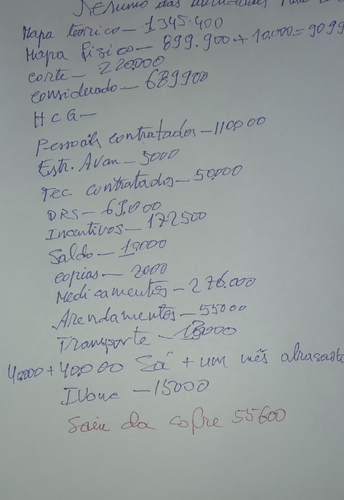 Resumo das
Mapa teórico - 1345.400
Mapa físico - 899.900 + 10.000 = 9099
corte - 220000
considuado - 689900
H C G -
Pessoais contratados - 110000
Estr. Avan - 5000
Tec contratados - 50.000
DRS - 69.000
Incentivos - 172500
Saldo - 19000
copias - 2000
Medicamentos - 276.000
Arendamentos - 55000
Transporte - 18000
40000 + 40,000 Sá + um mês atrasado
Ivone - 15000
Saiu da cofre 55600